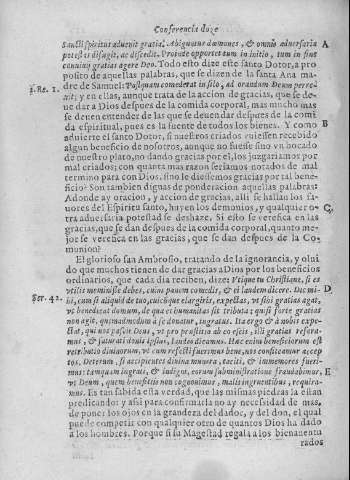 Conferencia doze
Sancti spiritus aduenit gratia. Abiguntur dæmones, & omnis aduersaria A
potestas disugit, ac discedit. Proinde opportet tum in initio, tum in fine
conuiuij gratias agere Deo. Todo esto dize este santo Dotor, a pro
posito de aquellas palabras, que se dizen de la santa Ana ma-
1. Re. 1. dre de Samuel: Postquam comederat in silo, ad orandum Deum perrex
xit; y en ellas, aunque trata de la accion de gracias, que se de-
ue dar a Dios despues de la comida corporal, mas mucho mas
se deuen entender de las que se deuen dar despues de la comi
da espiritual, pues es la fuente de todos los bienes. Y como B
aduierte el santo Dotor, si nuestros criados vuiessen recebido
algun beneficio de nosotros, aunque no fuesse sino vn bocado
de nuestro plato, no dando gracias por el, los juzgariamos por
mal criados; con quanta mas razon seriamos notados de mal
termino para con Dios, sino le diessemos gracias por tal bene-
ficio? Son tambien dignas de ponderacion aquellas palabras:
Adonde ay oracion, y accion de gracias, alli se hallan los fa-
uores del Espiritu santo, huyen los demonios, y qualquier o- C
tra aduersaria potestad se deshaze. Si esto se verifica en las
gracias, que se dan despues de la comida corporal, quanto me-
jor se verifica en las gracias, que se dan despues de la Co-
munion?
El glorioso san Ambrosio, tratando de la ignorancia, y olui
do que muchos tienen de dar gracias a Dios por los beneficios
ordinarios, que cada dia reciben, dize: Vtique tu Christiane, si es
vtilis meminisse debes, cuius panem comedis, & ei laudem dicere. Dic mi- D
Ser. 42. hi, cum si aliquid de tuo, cuichque elargiris, expectas, vt tibi gratias agat,
vt benedicat domum, de qua ei humanitas sit tributa; qui si forte gratias
non agit, quimmodum à se donatur, ingratus. Ita ergo & à nobis expe-
ctat, qui nos pascit Deus, vt pro pensitis ab eo escis, illi gratias refera-
mus, & saturati donis ipsius, laudes dicamus. Hæc enim beneficiorum est
retributio diuinorum, vt cum refecti fuerimus bene, nos confiteamur accep
tos. Deterum, si accipientes diuina munera, taciti, & immemores fueri-
mus: tamquam ingrati, & indigni, eorum subministratione fraudabimur, E
vt Deum, quem beneficijs non cognouimus, malis ingruentibus, requira-
mus. Es tan sabida esta verdad, que las mismas piedras la estan
predicando: y assi para confirmarla no ay necessidad de mas,
de poner los ojos en la grandeza del dador, y del don, el qual
puede competir con qualquier otro de quantos Dios ha dado
a los hombres. Porque si su Magestad regala a los bienauentu
rados